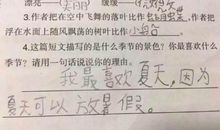 漂亮——美丽 缓缓——慢慢
3.作者把在空中飞舞的落叶比作 作者把
浮在水面上随风飘荡的树叶比作小船
4.这篇短文描写的是什么季节的景色？你最喜欢什么
季节？请用一句话说说你的理由。
我最喜欢夏天,因为
夏天可以放暑假。